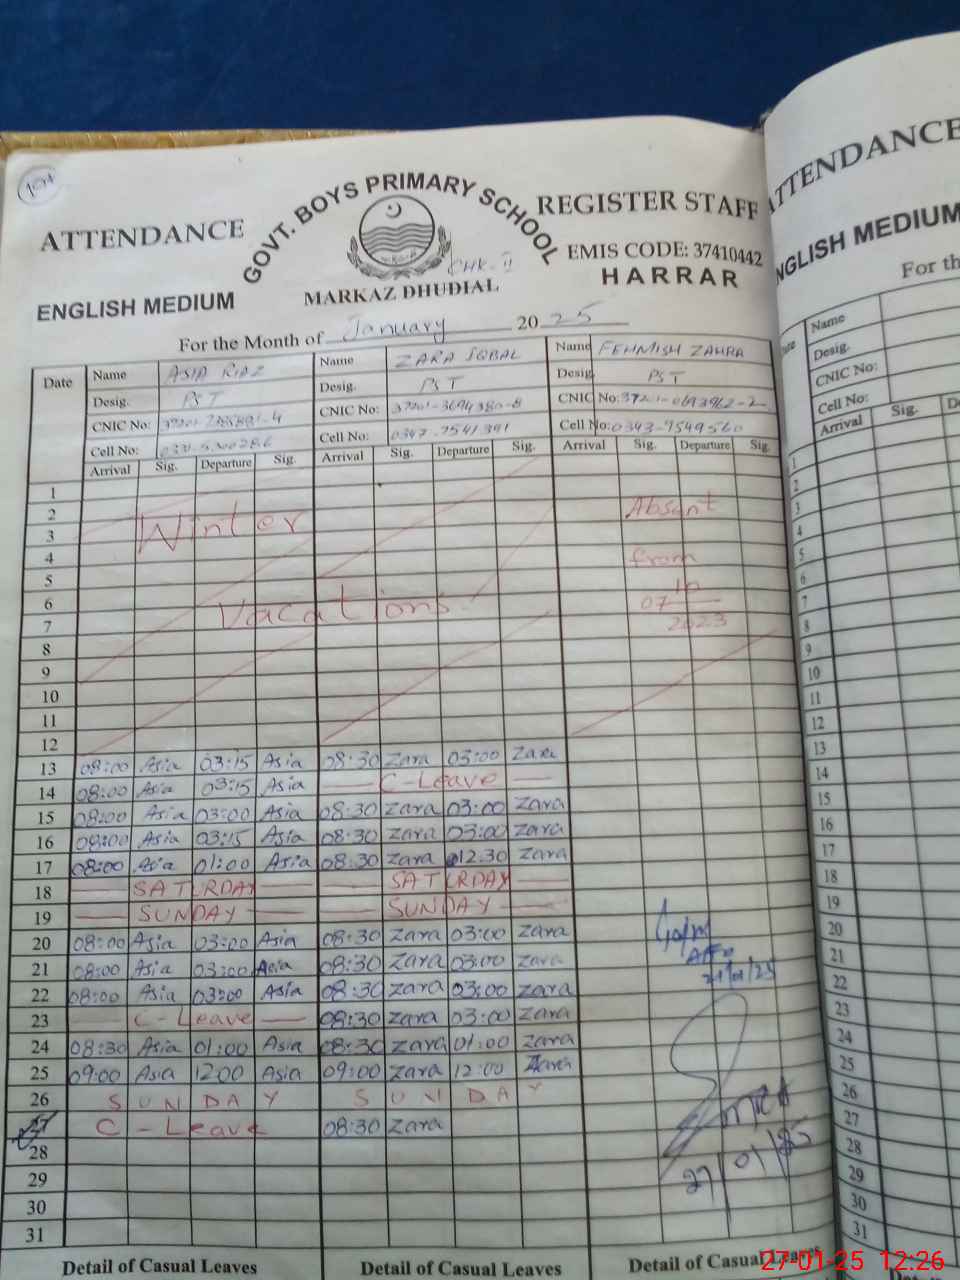 ATTENDANCE
GOVT. BOYS PRIMARY SCHOOL
REGISTER STAFF
EMIS CODE: 37410442
HARRAR
CHK-II
ENGLISH MEDIUM
MARKAZ DHUDIAL
For the Month of January 2025
Date Name ASIA RIAZ Name ZARA IQBAL Name FEHMISH ZAHRA
Desig. PST Desig. PST Desig. PST
CNIC No: CNIC No: 37201-3694380-8 CNIC No: 37201-0693962-2
Cell No: Cell No: 0347-7541391 Cell No: 0343-9549560
Arrival Sig. Departure Sig. Arrival Sig. Departure Sig. Arrival Sig. Departure Sig.
1
2 Absent
3 Winter
4 from
5
6 Vacations 07
7 2023
8
9
10
11
12
13 08:00 Asia 03:15 Asia 08:30 Zara 03:00 Zara
14 08:00 Asia 03:15 Asia C-Leave
15 08:00 Asia 03:00 Asia 08:30 Zara 03:00 Zara
16 08:00 Asia 03:15 Asia 08:30 Zara 03:00 Zara
17 08:00 Asia 01:00 Asia 08:30 Zara 12:30 Zara
18 SATURDAY SATURDAY
19 SUNDAY SUNDAY
20 08:00 Asia 03:00 Asia 08:30 Zara 03:00 Zara
21 08:00 Asia 03:00 Asia 08:30 Zara 03:00 Zara
22 08:00 Asia 03:00 Asia 08:30 Zara 03:00 Zara
23 C-Leave 08:30 Zara 03:00 Zara
24 08:30 Asia 01:00 Asia 08:30 Zara 01:00 Zara
25 09:00 Asia 12:00 Asia 09:00 Zara 12:00 Zara
26 SUNDAY SUNDAY
27 C-Leave 08:30 Zara
28 27/01/25
29
30
31
Detail of Casual Leaves Detail of Casual Leaves Detail of Casual Leaves
ATTENDANCE
ENGLISH MEDIUM
For th
Name
Desig.
CNIC No:
Cell No:
Arrival Sig.
1
2
3
4
5
6
7
8
9
10
11
12
13
14
15
16
17
18
19
20
21
22
23
24
25
26
27
28
29
30
31
27-01-25 12:26